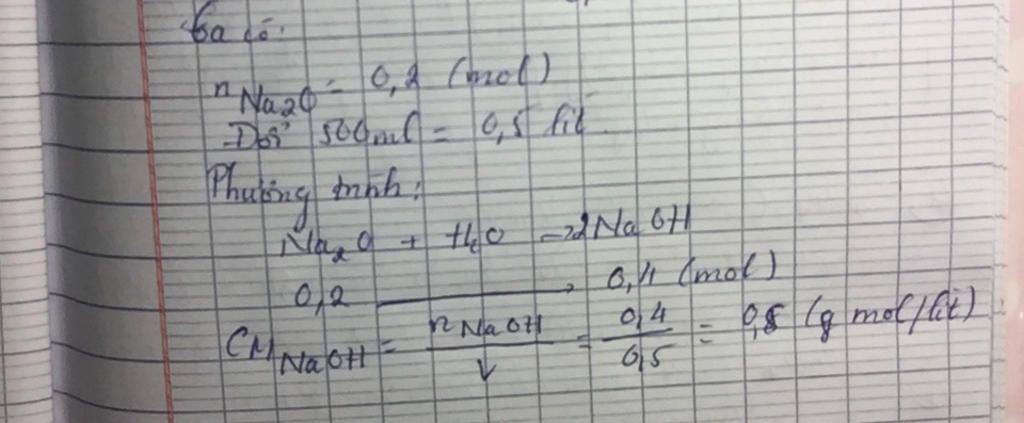 Ta có:
nNa2O = 0,2 (mol)
Đổi 500ml = 0,5 lít
Phương trình:
Na2O + H2O → 2NaOH
0,2 → 0,4 (mol)
CM NaOH = nNaOH / V = 0,4 / 0,5 = 0,8 (g mol/lít)